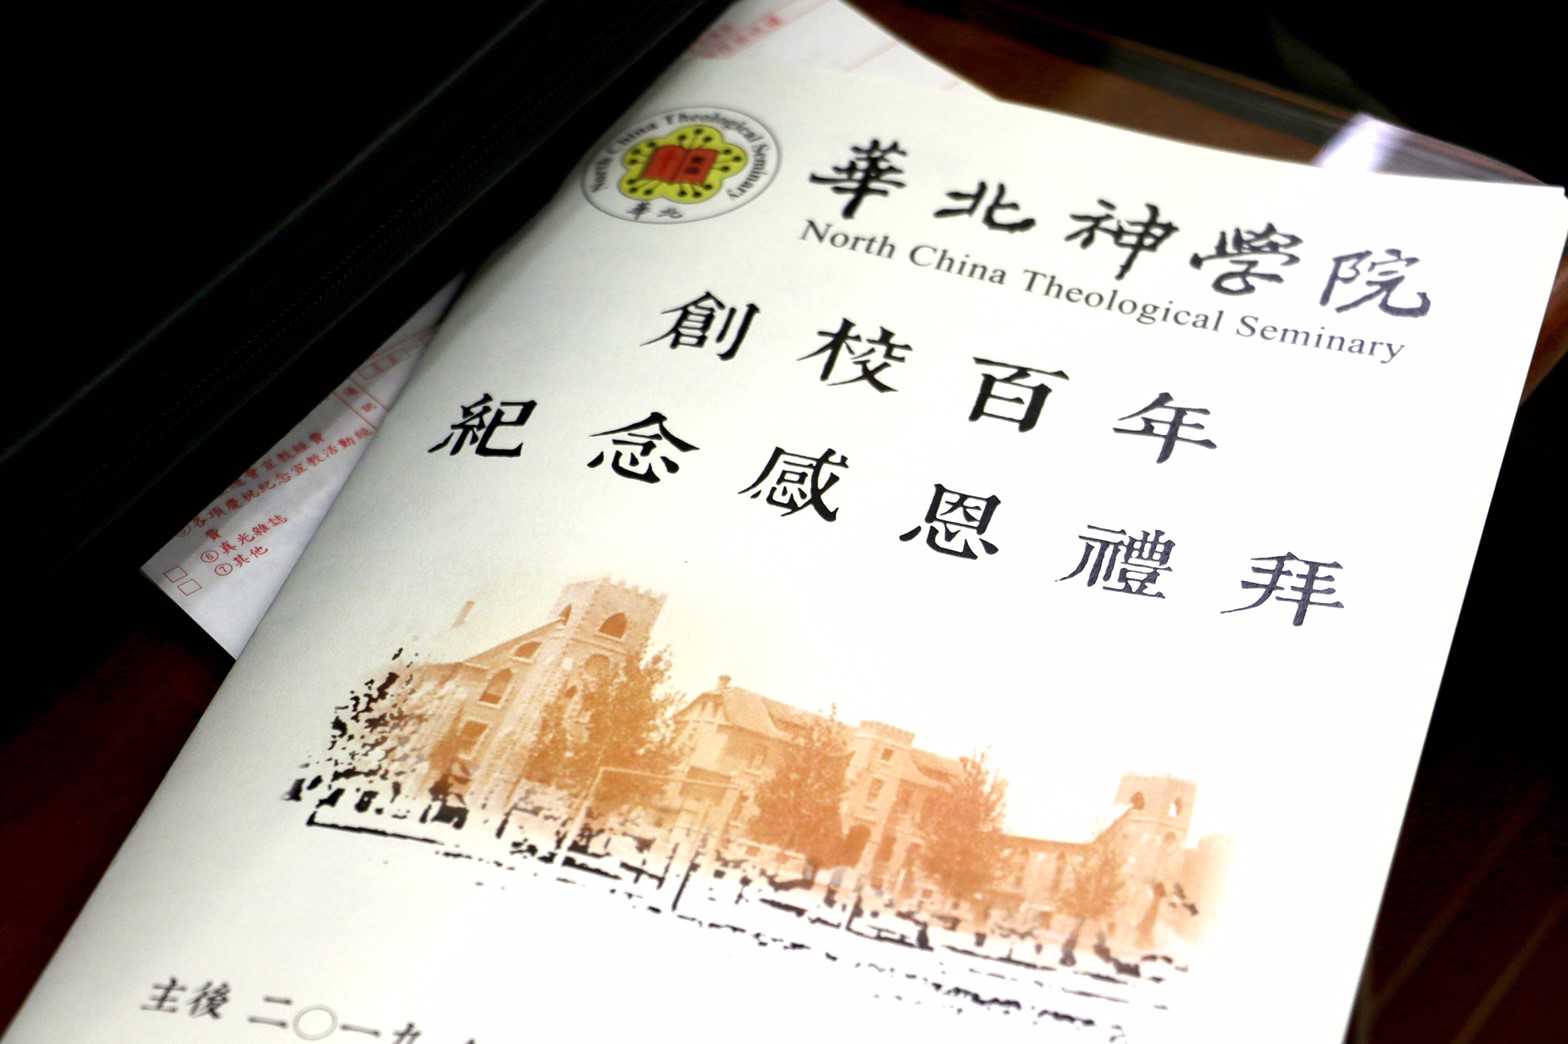 North China Theological Seminary
華北
華北神學院
North China Theological Seminary
創校百年
紀念感恩禮拜
主後 二〇一九
各項慶祝紀念宣教活動經
費
⑥真光雜誌
⑦其他